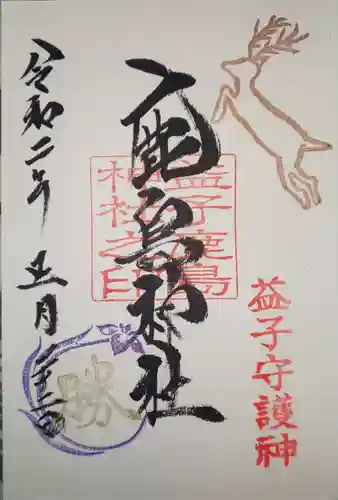 益子守護神
鹿島神社
益子鹿島
神社之印
令和二年五月二十二日
勝